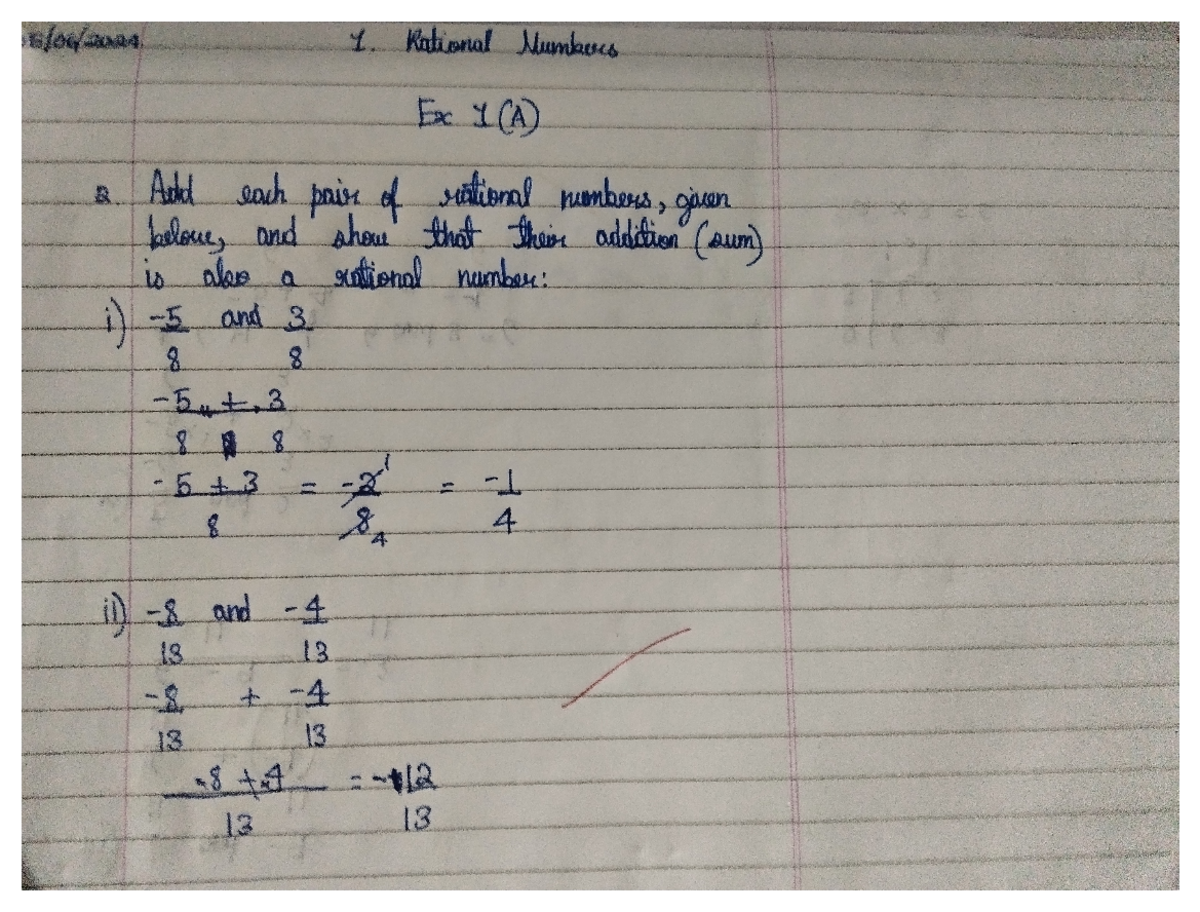 1. Rational Numbers
Ex 1(A)
2. Add each pair of rational numbers, given
below, and show that their addition (sum)
is also a rational number:
i) -5/8 and 3/8
-5/8 + 3/8
-5 + 3/8 = -2/8 1 4 = -1/4
ii) -8/13 and -4/13
-8/13 + -4/13
-8 + -4/13 = -12/13